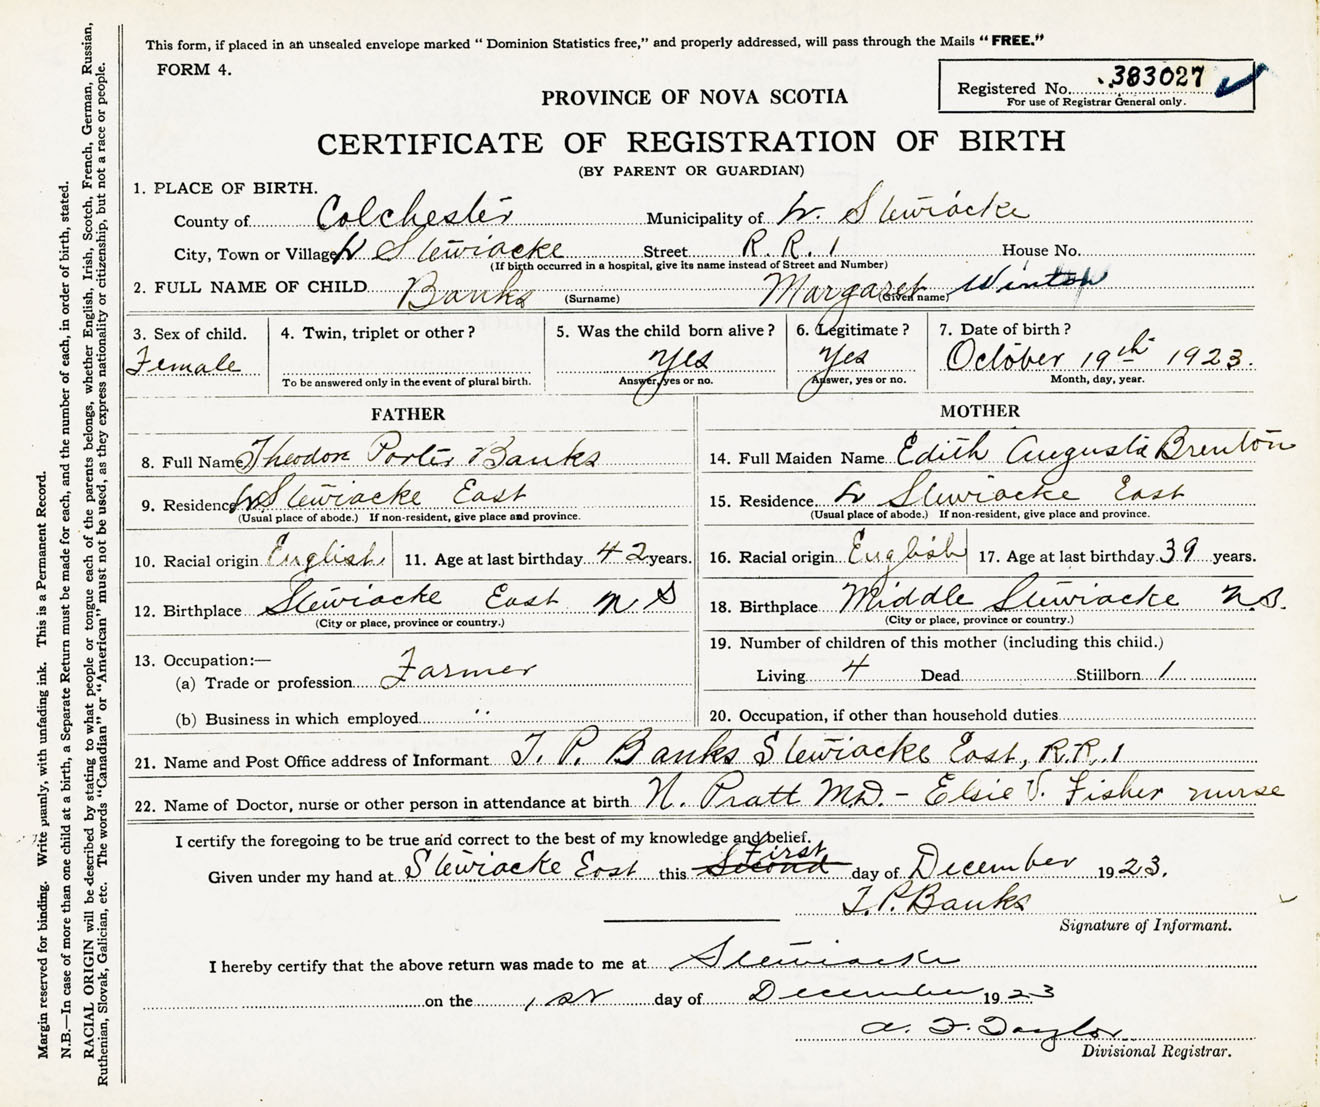 This form, if placed in an unsealed envelope marked "Dominion Statistics free," and properly addressed, will pass through the Mails "FREE."
FORM 4.
Registered No. 383027
For use of Registrar General only.
PROVINCE OF NOVA SCOTIA
CERTIFICATE OF REGISTRATION OF BIRTH
(BY PARENT OR GUARDIAN)
1. PLACE OF BIRTH.
County of Colchester Municipality of Stewiacke
City, Town or Village Stewiacke Street R. R. 1 House No.
(If birth occurred in a hospital, give its name instead of Street and Number)
2. FULL NAME OF CHILD Banks Margaret Winton
(Surname) (Given name)
3. Sex of child. 4. Twin, triplet or other? 5. Was the child born alive? 6. Legitimate? 7. Date of birth?
Female Yes Yes October 19th 1923.
To be answered only in the event of plural birth. Answer, yes or no. Answer, yes or no. Month, day, year.
FATHER MOTHER
8. Full Name Theodore Porter Banks 14. Full Maiden Name Edith Augusta Brenton
9. Residence Stewiacke East 15. Residence Stewiacke East
(Usual place of abode.) If non-resident, give place and province. (Usual place of abode.) If non-resident, give place and province.
10. Racial origin English 11. Age at last birthday 42 years. 16. Racial origin English 17. Age at last birthday 39 years.
12. Birthplace Stewiacke East N S 18. Birthplace Middle Stewiacke N.S.
(City or place, province or country.) (City or place, province or country.)
19. Number of children of this mother (including this child.)
13. Occupation:—
(a) Trade or profession Farmer Living 4 Dead Stillborn 1
(b) Business in which employed " 20. Occupation, if other than household duties
21. Name and Post Office address of Informant T. P. Banks Stewiacke East, R.R. 1
22. Name of Doctor, nurse or other person in attendance at birth N. Pratt M.D. - Elsie V. Fisher nurse
I certify the foregoing to be true and correct to the best of my knowledge and belief.
Given under my hand at Stewiacke East this Second First day of December 1923.
T. P. Banks
Signature of Informant.
I hereby certify that the above return was made to me at Stewiacke
on the 1st day of December 1923
A. F. Taylor
Divisional Registrar.
Margin reserved for binding. Write plainly, with unfading ink. This is a Permanent Record.
N.B.—In case of more than one child at a birth, a Separate Return must be made for each, and the number of each, in order of birth, stated.
RACIAL ORIGIN will be described by stating to what people or tongue each of the parents belongs, whether English, Irish, Scotch, French, German, Russian,
Ruthenian, Slovak, Galician, etc. The words "Canadian" or "American" must not be used, as they express nationality or citizenship, but not a race or people.